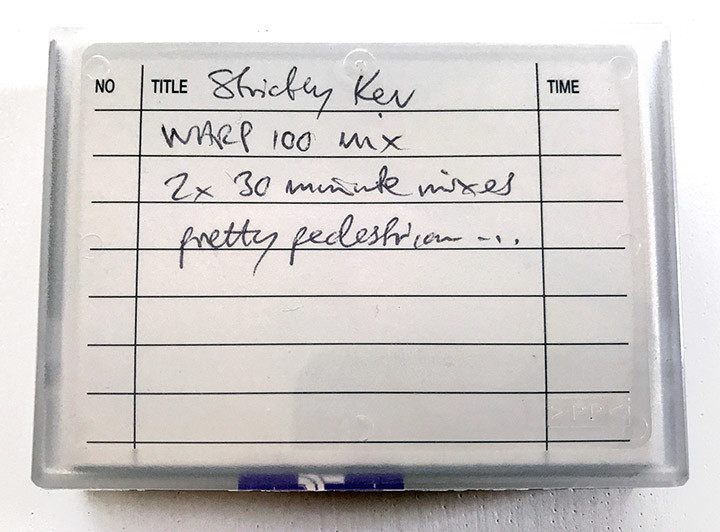 NO TITLE Strictly Kev TIME
WARP 100 mix
2x 30 minute mixes
pretty pedestrian ....
>PP<